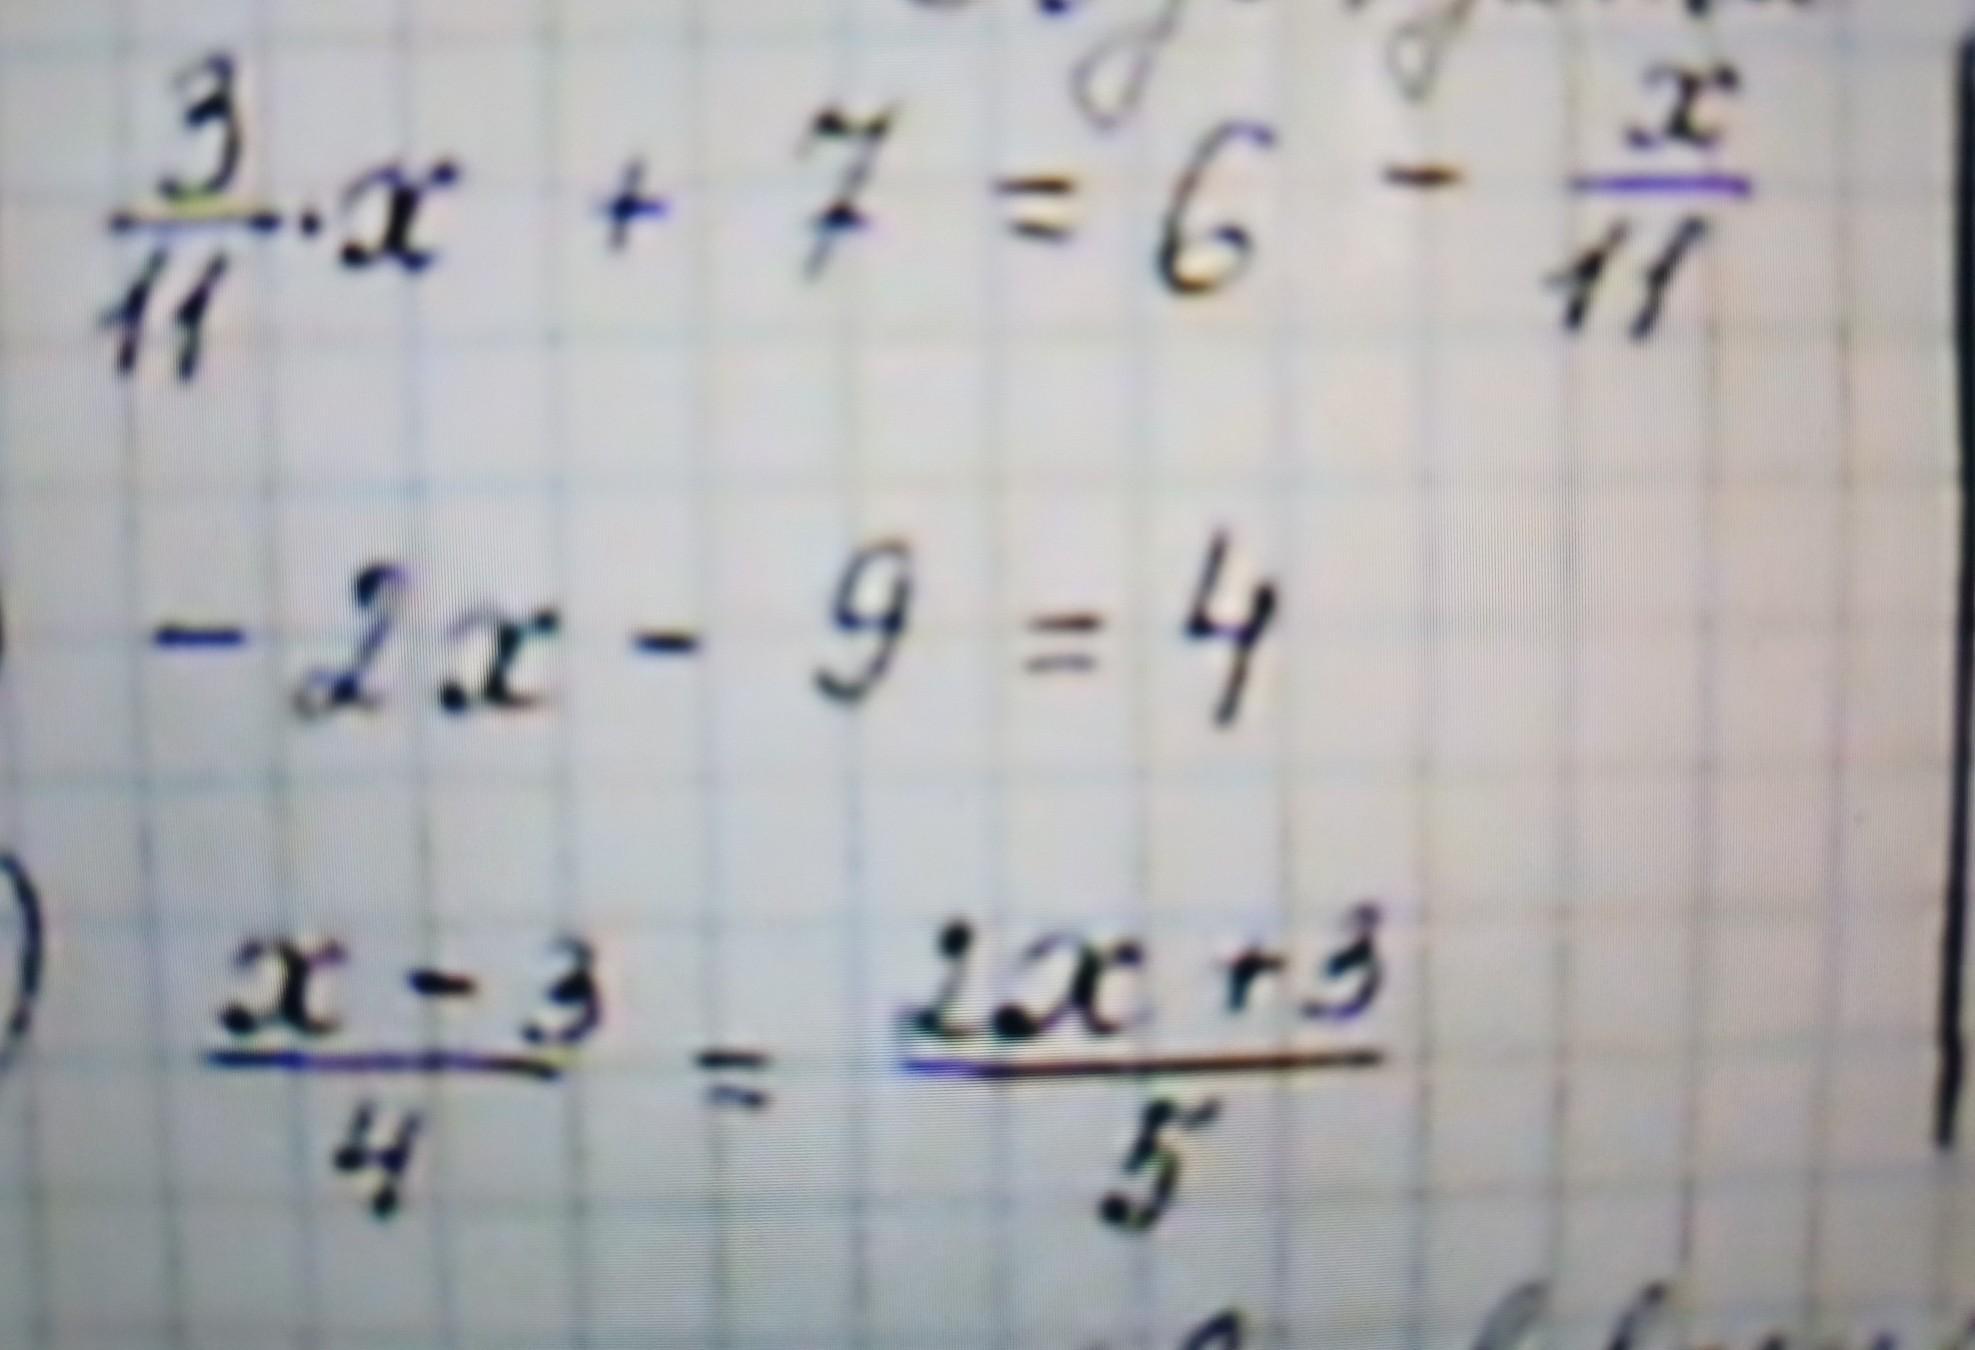 3/11 · x + 7 = 6 - x/11
- 2x - 9 = 4
) (x - 3)/4 = (2x + 3)/5